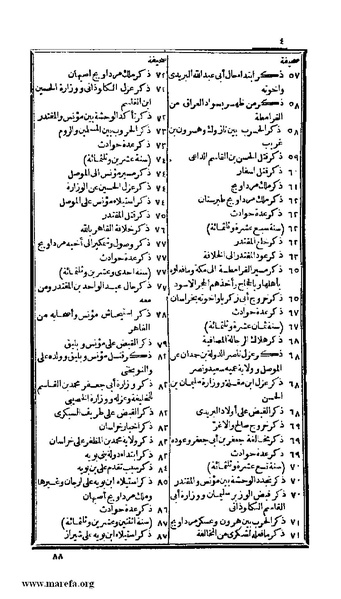 ٤
صحيفة
٥٧ ذكر ابتداء حال أبي عبد الله البريدي
واخوته
٥٨ ذكر من ظهر بسواد العراق من
القرامطة
٥٨ ذكر الحرب بين نازوك وهرون بن
غريب
٥٩ ذكر قتل الحسن بن القاسم الداعي
٦٠ ذكر قتل اسفار
٦١ ذكر ملك مرداويج
٦١ ذكر ملك مرداويج طبرستان
٦٢ ذكر عدة حوادث
٦٢ (سنة سبع عشرة وثلثمائة)
٦٢ ذكر خلع المقتدر
٦٣ ذكر عود المقتدر الى الخلافة
٦٥ ذكر مسير القرامطة الى مكة وما فعلوه
بأهلها وبالحجاج وأخذهم الحجر الاسود
٦٥ ذكر خروج أبي زكريا واخوته بخراسان
٦٧ ذكر عدة حوادث
٦٧ (سنة ثمان عشرة وثلثمائة)
٦٧ ذكر هلاك الرجالة المصافية
٦٨ ذكر عزل ناصر الدولة بن حمدان عن
الموصل وولاية عميه سعيد ونصر
٦٨ ذكر عزل ابن مقلة ووزارة سليمان بن
الحسن
٦٨ ذكر القبض على أولاد البريدي
٦٨ ذكر خروج صالح والاغر
٦٩ ذكر مخالفة جعفر بن أبي جعفر وعوده
٦٩ ذكر عدة حوادث
٧٠ (سنة تسع عشرة وثلثمائة)
٧٠ ذكر تجدد الوحشة بين مؤنس والمقتدر
٧٠ ذكر قبض الوزير سليمان ووزارة أبي
القاسم الكلوذاني
٧١ ذكر الحرب بين هرون وعسكر مرداويج
٧١ ذكر ما فعله لشكري من المخالفة
صحيفة
٧٢ ذكر ملك مرداويج اصبهان
٧١ ذكر عزل الكلوذاني ووزارة الحسين
ابن القاسم
٧٢ ذكر تأكد الوحشة بين مؤنس والمقتدر
٧٣ ذكر الحروب بين المسلمين والروم
٧٣ ذكر عدة حوادث
٧٤ (سنة عشرين وثلثمائة)
٧٤ ذكر مسير مؤنس الى الموصل
٧٤ ذكر عزل الحسين عن الوزارة
٧٤ ذكر استيلاء مؤنس على الموصل
٧٥ ذكر قتل المقتدر
٧٦ ذكر خلافة القاهر بالله
٧٧ ذكر وصول وشمكير الى أخيه مرداويج
٧٧ ذكر عدة حوادث
٧٧ (سنة احدى وعشرين وثلثمائة)
٧٧ ذكر حال عبد الواحد بن المقتدر ومن
معه
٧٨ ذكر استيحاش مؤنس وأصحابه من
القاهر
٧٩ ذكر القبض على مؤنس وبليق
٨١ ذكر قتل مؤنس وبليق وولده علي
والنوبختي
٨٢ ذكر وزارة أبي جعفر محمد بن القاسم
للخليفة وعزله ووزارة الخصيبي
٨٢ ذكر القبض على طريف السبكري
٨٢ ذكر أخبار خراسان
٨٣ ذكر ولاية محمد بن المظفر على خراسان
٨٣ ذكر ابتداء دولة بني بويه
٨٤ ذكر سبب تقدم علي بن بويه
٨٥ ذكر استيلاء ابن بويه على ارجان وغيرها
وملك مرداويج أصبهان
٨٦ ذكر عدة حوادث
٨٧ (سنة اثنتين وعشرين وثلثمائة)
٨٧ ذكر استيلاء ابن بويه على شيراز
٨٨
www.marefa.org